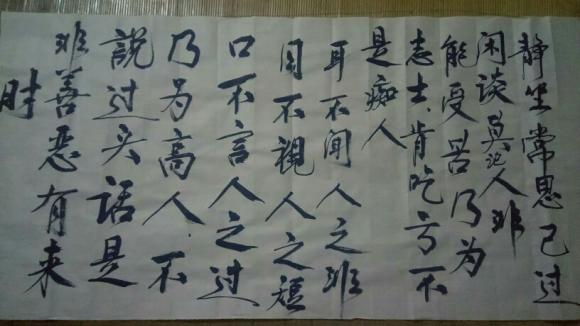 静坐常思己过
闲谈莫论人非
能受苦乃为
志士肯吃亏不
是痴人
耳不闻人之非
目不视人之短
口不言人之过
乃为高人不
説过头话是
非善恶有来
时